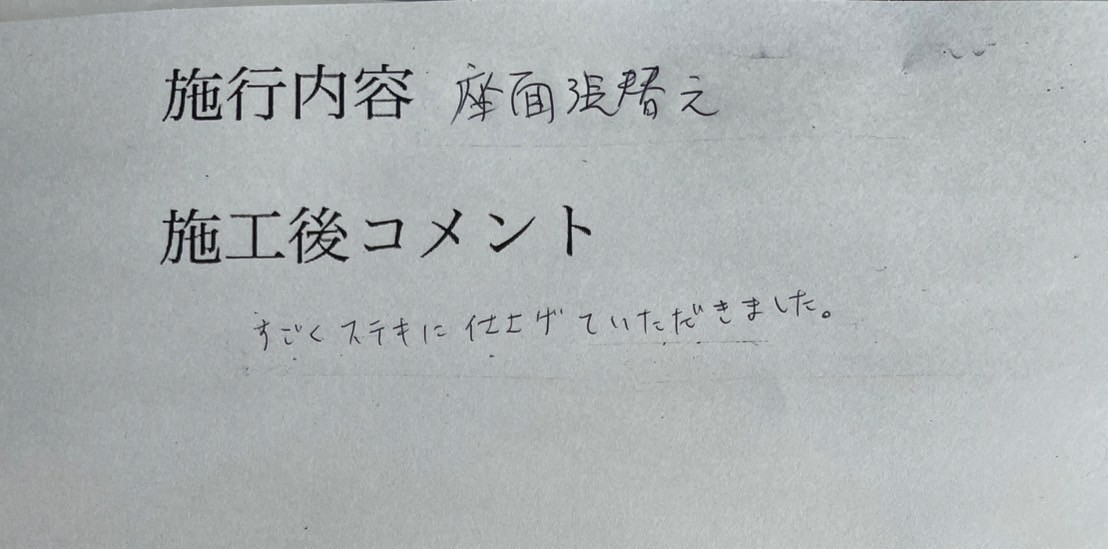 施行内容 座面張替え
施工後コメント
すごくステキに仕上げていただきました。